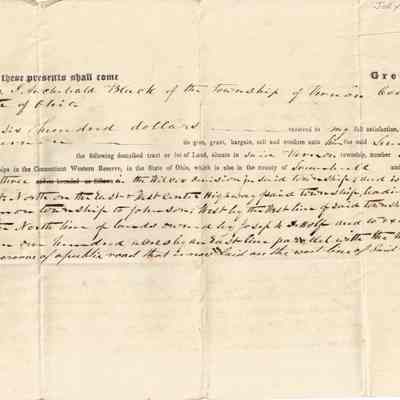 July
these presents shall come Gre
I Archibald Black of the Township of Vernon Co
of Ohio
Six hundred dollars received to my full satisfaction,
do give, grant, bargain, sell and confirm unto him the said
the following described tract or lot of Land, situate in said Vernon township, number
ships in the Connecticut Western Reserve, in the State of Ohio, which is also in the county of Trumbull and
three in the Wilcox division in said township, and is
North on the East & West Center Highway of said township, leading
township to Johnson; West by the West line of said township
North line of lands owned by Joseph DeWolf and to
one hundred acres by an East line parallel with the
of a public road that is now laid on the west line of said